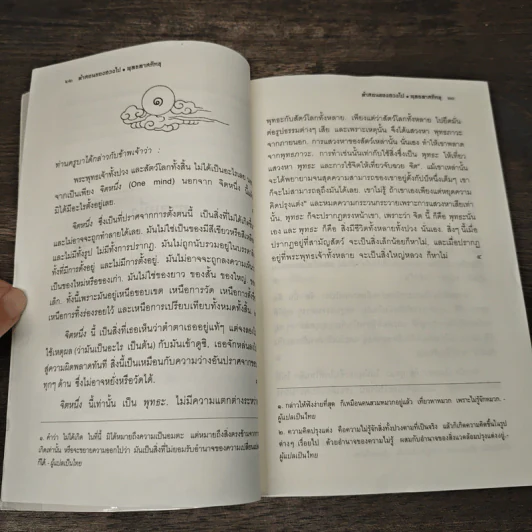 ๒๒ คำสอนของฮวงโป • พุทธทาสภิกขุ
๑
ท่านครูบาได้กล่าวกับข้าพเจ้าว่า :
พระพุทธเจ้าทั้งปวงและสัตว์โลกทั้งสิ้น ไม่ได้เป็นอะไรเลย
จากเป็นเพียง จิตหนึ่ง (One mind) นอกจาก จิตหนึ่ง นี้
มิได้มีอะไรตั้งอยู่เลย
จิตหนึ่ง ซึ่งเป็นที่ปราศจากการตั้งต้นนี้ เป็นสิ่งที่ไม่ได้เกิดขึ้น
และไม่อาจจะถูกทำลายได้เลย มันไม่ใช่เป็นของมีสีเขียวหรือสี
และไม่มีทั้งรูป ไม่มีทั้งการปรากฏ มันไม่ถูกนับรวมอยู่ใน
ทั้งที่มีการตั้งอยู่ และไม่มีการตั้งอยู่ มันไม่อาจจะถูกลงความเห็น
เป็นของใหม่หรือของเก่า มันไม่ใช่ของยาว ของสั้น ของใหญ่
เล็ก ทั้งนี้เพราะมันอยู่เหนือขอบเขต เหนือการวัด เหนือการ
เหนือการทิ้งร่องรอยไว้ และเหนือการเปรียบเทียบทั้งหมดทั้งสิ้น
จิตหนึ่ง นี้ เป็นสิ่งที่เธอเห็นว่าตำตาเธออยู่แท้ๆ แต่จงลอง
ใช้เหตุผล (ว่ามันเป็นอะไร เป็นต้น) กับมันเข้าดูซิ เธอจักหล่น
สู่ความผิดพลาดทันที สิ่งนี้เป็นเหมือนกับความว่างอันปราศจาก
ทุกๆ ด้าน ซึ่งไม่อาจหยั่งหรือวัดได้
จิตหนึ่ง นี้เท่านั้น เป็น พุทธะ ไม่มีความแตกต่างระหว่าง
๑. คำว่า ไม่ได้เกิด ในที่นี้ มิได้หมายถึงความเป็นอมตะ แต่หมายถึงสิ่งตรงข้าม
เกิดเท่านั้น หรือจะขยายความออกไปว่า มันเป็นสิ่งที่ไม่ยอมรับอำนาจของความเปลี่ยน
ก็ได้ - ผู้แปลเป็นไทย
คำสอนของฮวงโป • พุทธทาสภิกขุ ๒๓
พุทธะกับสัตว์โลกทั้งหลาย เพียงแต่ว่าสัตว์โลกทั้งหลาย ไปยึดมั่น
ต่อรูปธรรมต่างๆ เสีย และเพราะเหตุนั้น จึงได้แสวงหา พุทธภาวะ
จากภายนอก การแสวงหาของสัตว์เหล่านั้น นั่นเอง ทำให้เขาพลาด
จากพุทธภาวะ การทำเช่นนั้นเท่ากับใช้สิ่งซึ่งเป็น พุทธะ ให้เที่ยว
แสวงหา พุทธะ และการใช้จิตให้เที่ยวจับฉวย จิต๑ แม้เขาเหล่านั้น
จะได้พยายามจนสุดความสามารถของเขาอยู่ตั้งกัปป์หนึ่งเต็มๆ เขา
ก็จะไม่สามารถลุถึงมันได้เลย เขาไม่รู้ ถ้าเขาเองเพียงแต่หยุดความ
คิดปรุงแต่ง๒ และหมดความกระวนกระวายเพราะการแสวงหาเสียเท่า
นั้น พุทธะ ก็จะปรากฏตรงหน้าเขา, เพราะว่า จิต นี้ ก็คือ พุทธะนั่น
เอง และ พุทธะ ก็คือ สิ่งมีชีวิตทั้งหลายทั้งปวง นั่นเอง สิ่งๆ นี้เมื่อ
ปรากฏอยู่ที่สามัญสัตว์ จะเป็นสิ่งเล็กน้อยก็หาไม่, และเมื่อปรากฏ
อยู่ที่พระพุทธเจ้าทั้งหลาย จะเป็นสิ่งใหญ่หลวง ก็หาไม่
๑. กล่าวให้ฟังง่ายที่สุด ก็เหมือนคนสวมหมวกอยู่แล้ว เที่ยวหาหมวก เพราะไม่รู้จักหมวก -
ผู้แปลเป็นไทย
๒. ความคิดปรุงแต่ง คือความไม่รู้จักสิ่งทั้งปวงตามที่เป็นจริง แล้วก็เกิดความคิดขึ้นในรูป
ต่างๆ เรื่อยไป ด้วยอำนาจของความไม่รู้ ผสมกับอำนาจของสิ่งแวดล้อมปรุงแต่งอยู่ -
ผู้แปลเป็นไทย